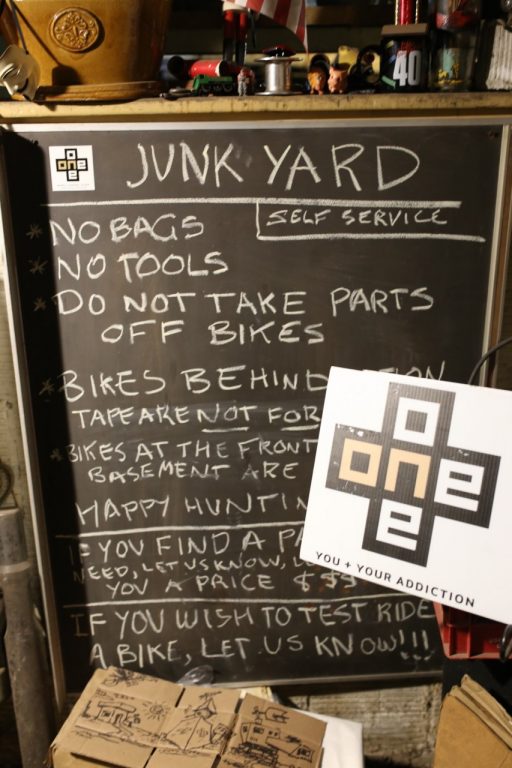 JUNK YARD
SELF SERVICE
* NO BAGS
* NO TOOLS
* DO NOT TAKE PARTS
OFF BIKES
* BIKES BEHIND
TAPE ARE NOT FOR
* BIKES AT THE FRONT
BASEMENT ARE
HAPPY HUNTIN
IF YOU FIND A PA
NEED, LET US KNOW,
YOU A PRICE $$$
IF YOU WISH TO TEST RIDE
A BIKE, LET US KNOW!!!
one
one
YOU + YOUR ADDICTION
one
one
40